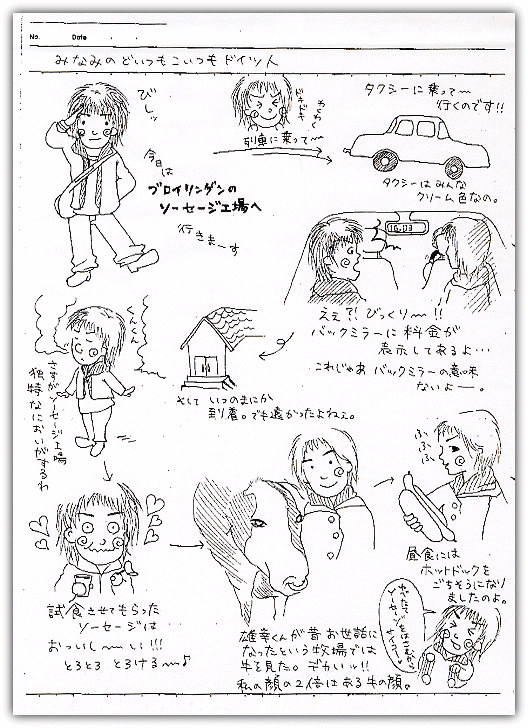 No.
Date
みなみのどいつもこいつもドイツ人
びしッ
今日は
ブロイリンダンの
ソーセージ工場へ
行きまーす
ドキドキ
わくわく
列車に乗って〜
タクシーに乗って〜
行くのです!!
タクシーはみんな
クリーム色なの。
16.03
ええ?!びっくり〜!!
バックミラーに料金が
表示してあるよ…
これじゃあバックミラーの意味
ないよー。
そして いつのまにか
到着。でも遠かったよねぇ。
くんくん
さすがソーセージ工場
独特なにおいがするわ
試食させてもらった
ソーセージは
おっいし〜い!!!
とろとろ とろける〜♪
雄幸くんが昔お世話に
なったという牧場では
牛を見た。デカいッ!!
私の顔の2倍はある牛の顔。
ふふふ
昼食には
ホットドックを
ごちそうになり
ましたのよ。